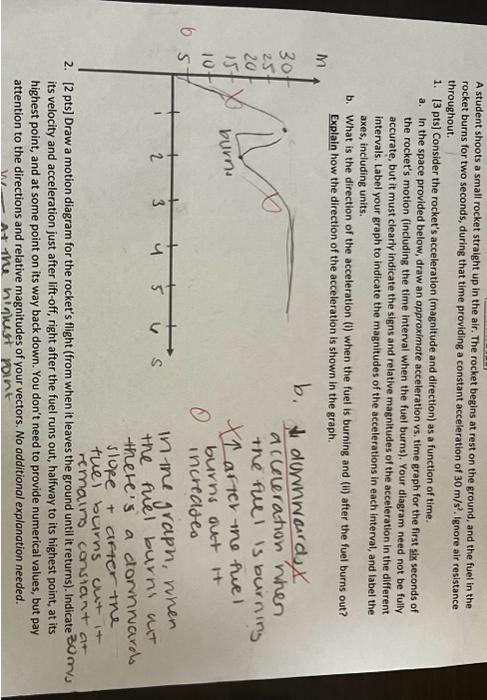 A student shoots a small rocket straight up in the air. The rocket begins at rest on the ground, and the fuel in the
rocket burns for two seconds, during that time providing a constant acceleration of 30 m/s². Ignore air resistance
throughout.
1. [3 pts] Consider the rocket's acceleration (magnitude and direction) as a function of time.
a. In the space provided below, draw an approximate acceleration vs. time graph for the first six seconds of
the rocket's motion (including the time interval when the fuel burns). Your diagram need not be fully
accurate, but it must clearly indicate the signs and relative magnitudes of the acceleration in the different
intervals. Label your graph to indicate the magnitudes of the accelerations in each interval, and label the
axes, including units.
b. What is the direction of the acceleration (i) when the fuel is burning and (ii) after the fuel burns out?
Explain how the direction of the acceleration is shown in the graph.
m
30
25
20
15
10
5
burn
1 2 3 4 5 6 s
b. ↓ downwards
acceleration when
the fuel is burning
↑ after the fuel
burns out it
increases
In the graph, when
the fuel burns out
there's a downwards
slope + after the
fuel burns out it
remains constant at
30 m/s
2. [2 pts] Draw a motion diagram for the rocket's flight (from when it leaves the ground until it returns). Indicate
its velocity and acceleration just after lift-off, right after the fuel runs out, halfway to its highest point, at its
highest point, and at some point on its way back down. You don't need to provide numerical values, but pay
attention to the directions and relative magnitudes of your vectors. No additional explanation needed.
At the highest point